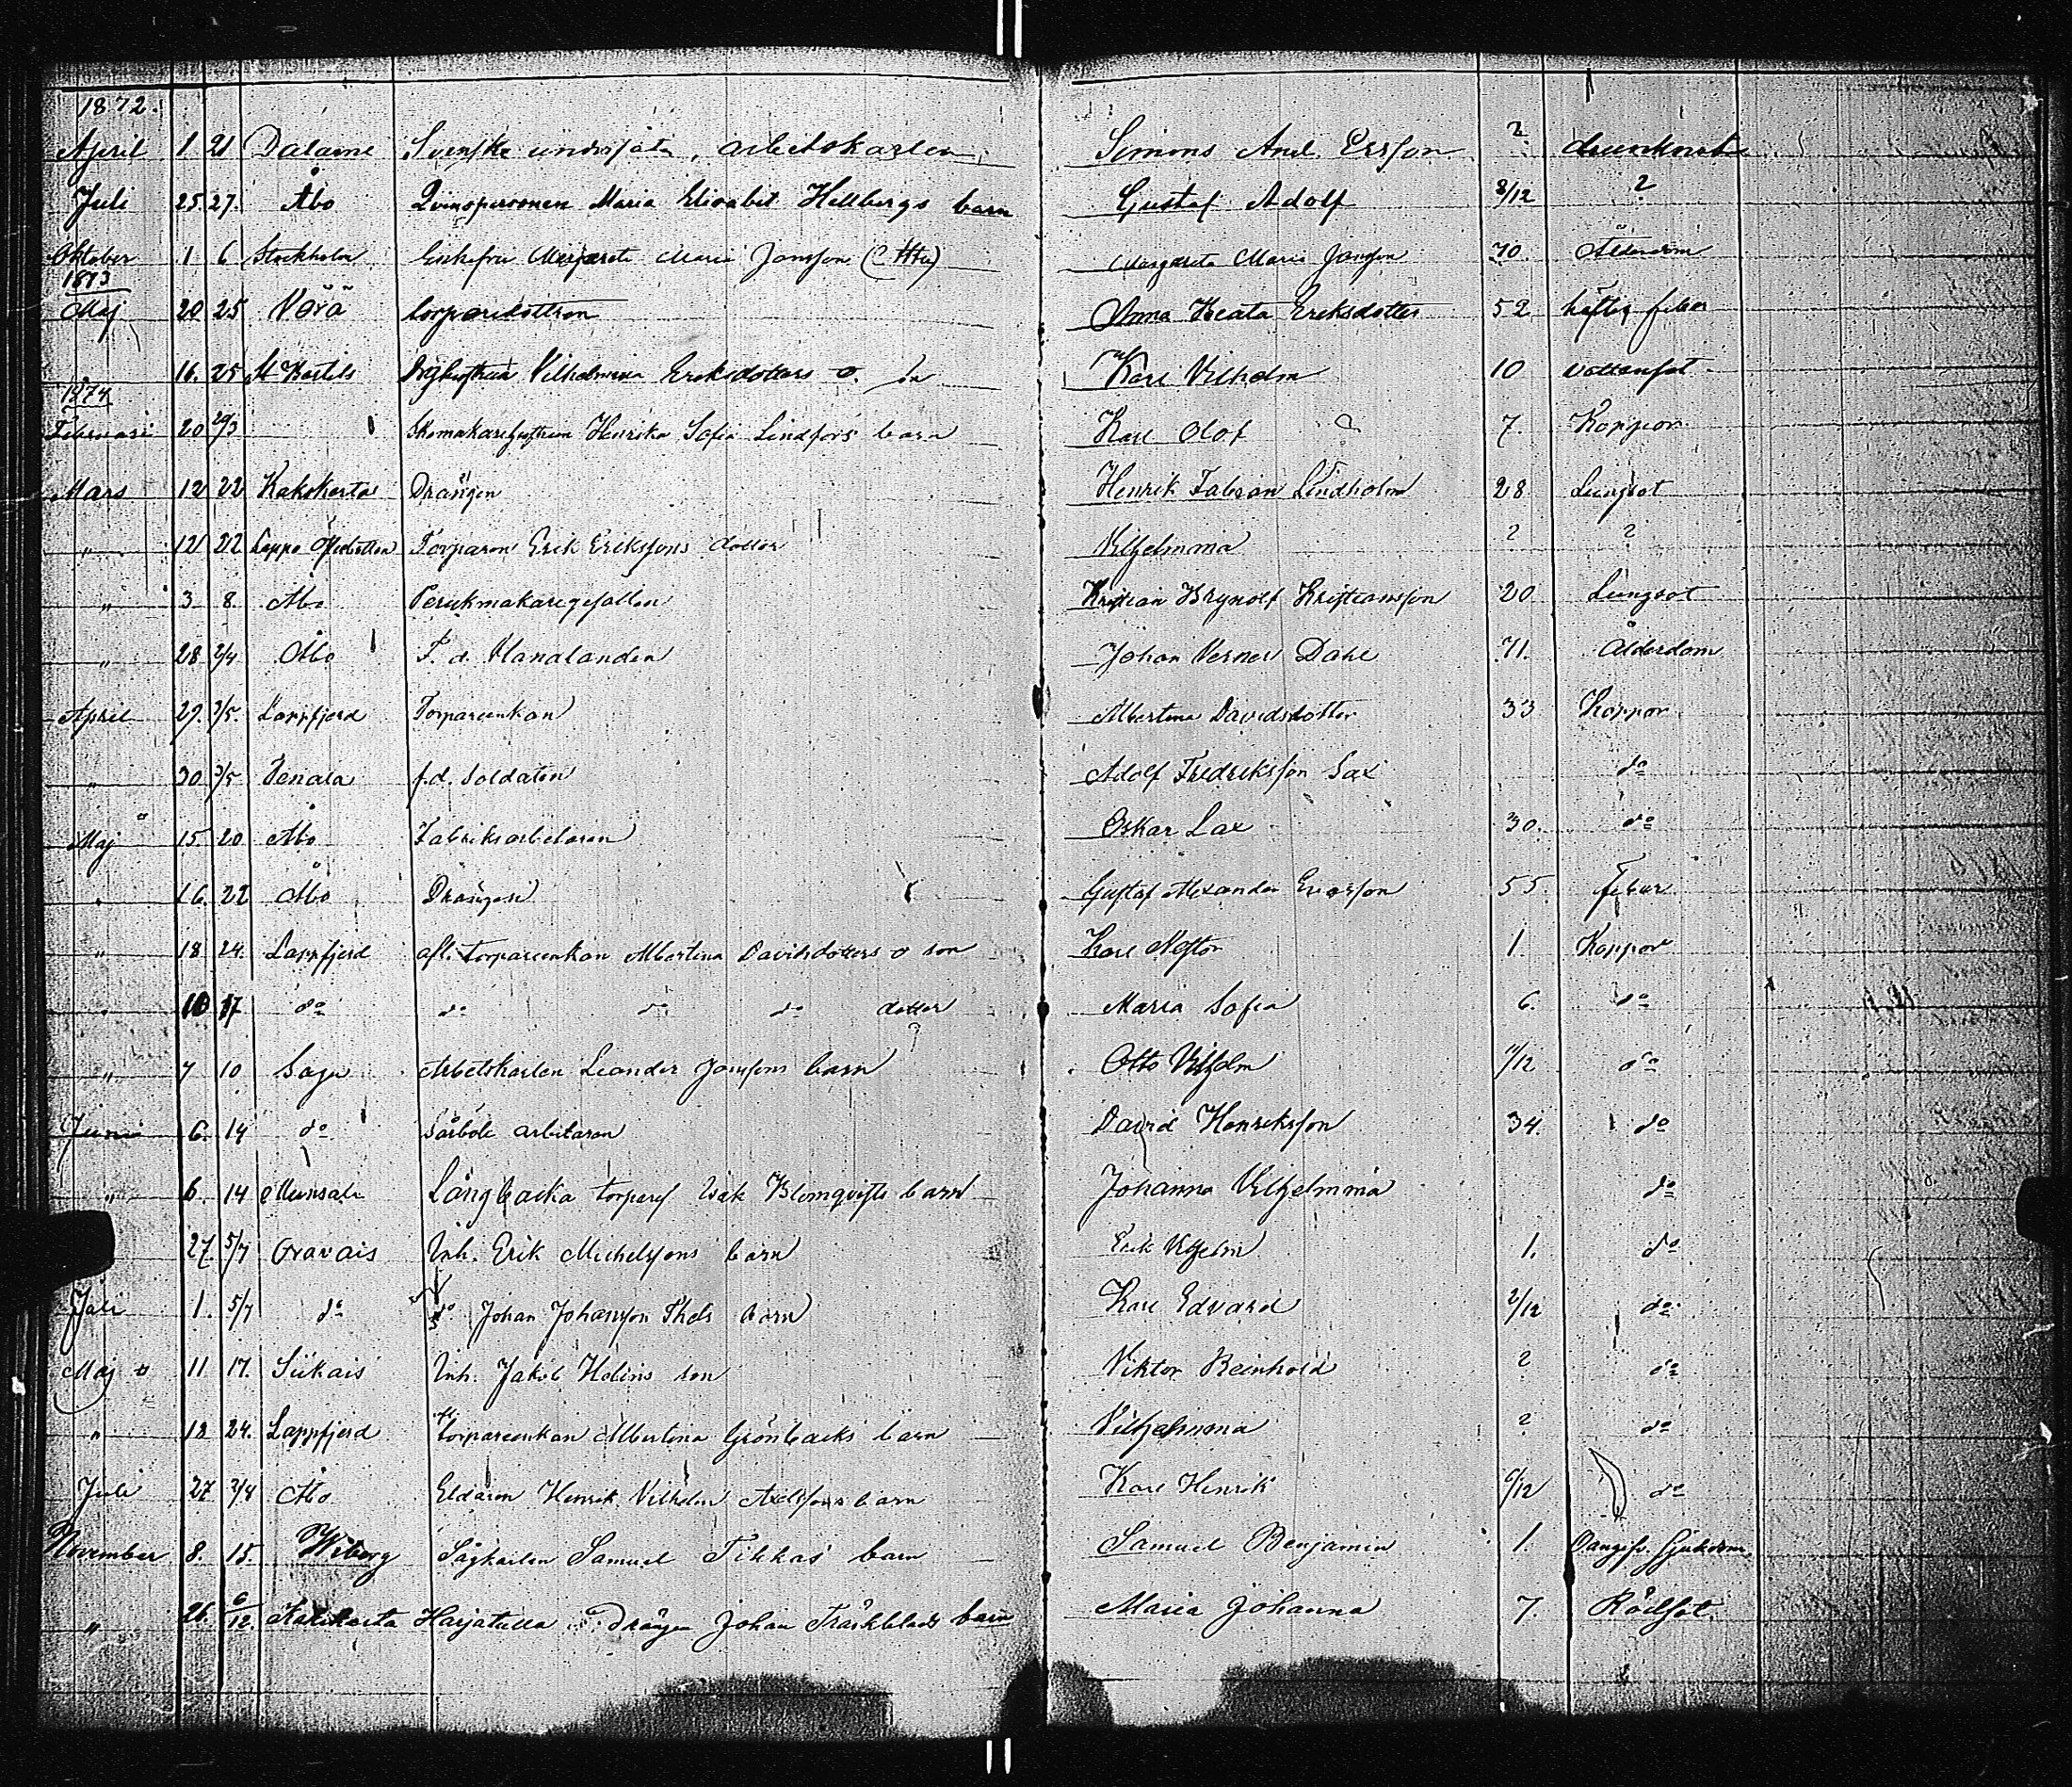 1872.
April 1. 21 Dalarne Svenske undersåten, arbetskarlen, Simons And. Ersson ? drunknat
Juli 25. 27. Åbo Qvinspersonen Maria Elisabet Hellbergs barn Gustaf Adolf 8/12 ?
Oktober 1 6 Stockholm Enkefru Margareta Maria Jansson Margareta Maria Jansson 70 Ålderdom
1873
Maj 20 25 Vörå Anna Beata Eriksdotter 52 häftig feber
16. 25 St Karins Vilhelmina Eriksdotters o. son Karl Vilhelm 10 Vattensot
1874
Februari 20 20/3 Henrika Sofia Lindfors barn Karl Olof ? 7. Koppor
Mars 12 22 Kakskerta Drängen Henrik Fabian Lindholm 28 Lungsot
" 12 22 Lappo Österbotten Torparen Erik Erikssons dotter Vilhelmina ? ?
" 3 8. Åbo Perukmakaregesällen Kristian Brynolf Kristiansson 20. Lungsot
" 28 2/4 Åbo F. d. Johan Verner Dahl 71. Ålderdom
April 29. 3/5. Lappfjerd Torpareenkan Albertina Davidsdotter 33 Koppor
" 30. 3/5 Penala f.d. Soldaten Adolf Fredriksson Sax do
Maj 15. 20 Åbo Fabriksarbetaren Oskar Lax 30. do
" 16. 22 Åbo Drängen Gustaf Alexander 55. Feber
" 18 24. Lappfjerd afl. torpareenkan Albertina Davidsdotters o son Karl Nestor 1. Koppor
" 10 17 do do do do dotter Maria Sofia 6. do
" 7 10 Sagu Arbetskarlen Leander Janssons barn Otto Vilhelm /12 do
Juni 6. 14 do Sårböle arbetaren David Henriksson 34. do
" 6. 14 Munsala Långbacka torparen Isak Blomqvists barn Johanna Vilhelmina do
27. 5/7 Oravais Inh. Erik Michelssons barn Erik Vilhelm 1. do
Juli 1. 5/7 do do Johan Johansson Thels barn Karl Edvard 2/12 do
Maj 11 17. Siikais Inh. Jakob Helins son Viktor Reinhold ? do
" 18 24. Lappfjerd afl. torpareenkan Albertina Grönbacks barn Vilhelmina ? do
Juli 27 2/4 Åbo Eldaren Henrik Vilhelm Axelssons barn Karl Henrik 6/12 do
November 8. 15. Wiborg Sågkarlen Samuel Tikkas barn Samuel Benjamin 1. Oangifv. sjukdom
" 26. 6/12. Kakskerta Harjatulla Drängen Johan Träskblads barn Maria Johanna 7. Rödsot